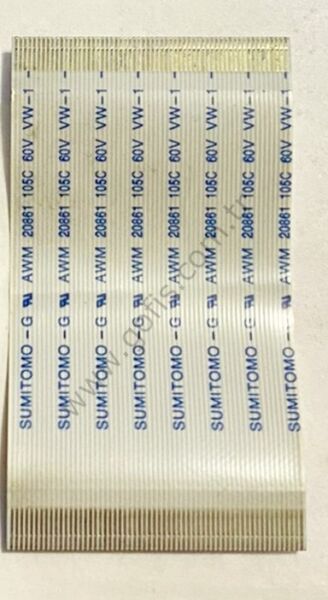 SUMITOMO-G AWM 20861 105C 60V VW-1 -
SUMITOMO-G AWM 20861 105C 60V VW-1 -
SUMITOMO-G AWM 20861 105C 60V VW-1 -
SUMITOMO-G AWM 20861 105C 60V VW-1 -
SUMITOMO-G AWM 20861 105C 60V VW-1 -
SUMITOMO-G AWM 20861 105C 60V VW-1 -
SUMITOMO-G AWM 20861 105C 60V VW-1 -
SUMITOMO- AWM 20861 105C 60V VW-1 -
www.gofis.com.tr